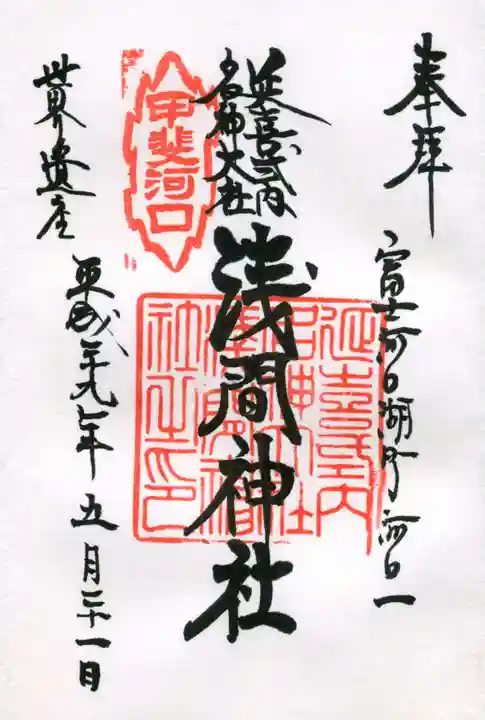 奉拝
富士河口湖町河口一
延喜式内
名神大社
浅間神社
甲斐河口
延喜式内
名神大社
浅間神
社之印
世界遺産
平成二十九年五月二十一日